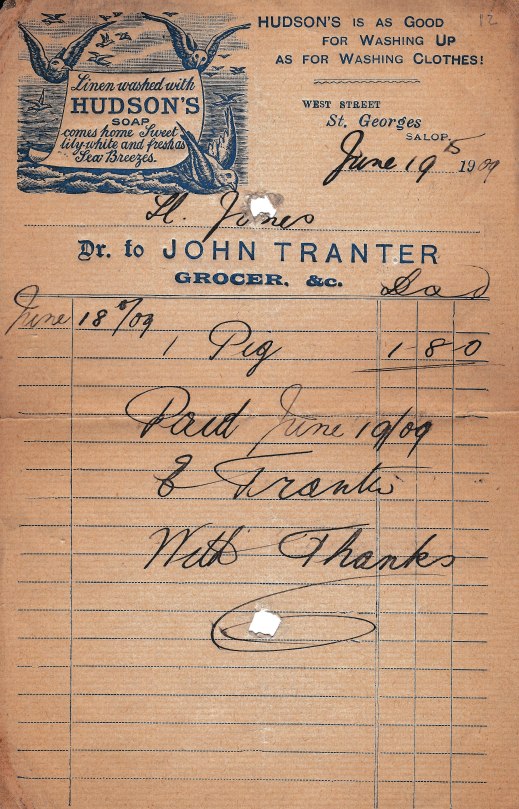 12
HUDSON'S IS AS GOOD
FOR WASHING UP
AS FOR WASHING CLOTHES!
Linen washed with
HUDSON'S
SOAP
comes home Sweet
lily-white and fresh as
Sea Breezes.
WEST STREET
St. Georges
SALOP.
June 19th 1909
H. Jones
Dr. to JOHN TRANTER
GROCER, &c.
£ s d
June 18th/09
1 Pig 1-8-0
Paid June 19/09
Tranter
With Thanks